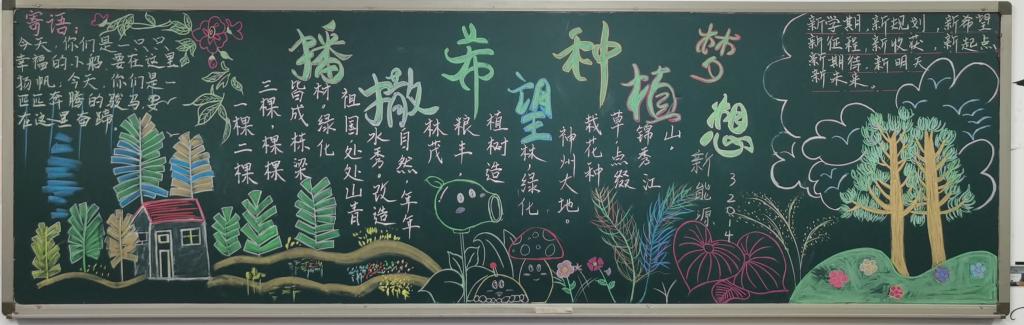 寄语：
今天，你们是一只只
幸福的小船，要在这里
扬帆，今天，你们是一
匹匹奔腾的骏马，要
在这里奋蹄。
播撒希望种植梦想
一棵二棵
三棵，棵棵
皆成栋梁
材，绿化
祖国处处山青
水秀。改造
自然，年年
林茂，
粮丰，
植树造
林绿化
神州大地。
栽花种
草，点缀
锦秀江
山，
新能源
3204
新学期，新规划，新希望
新征程，新收获，新起点，
新期待，新明天
新未来。